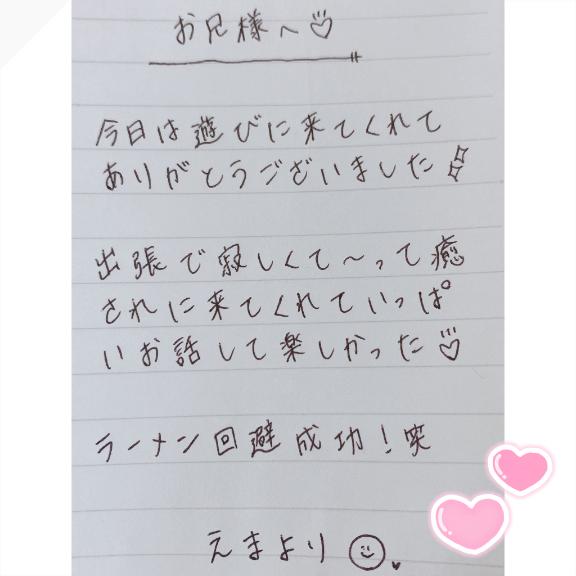 お兄様へ♡
今日は遊びに来てくれて
ありがとうございました
出張で寂しくて〜って癒
されに来てくれていっぱ
いお話して楽しかった♡
ラーメン回避成功！笑
えまより